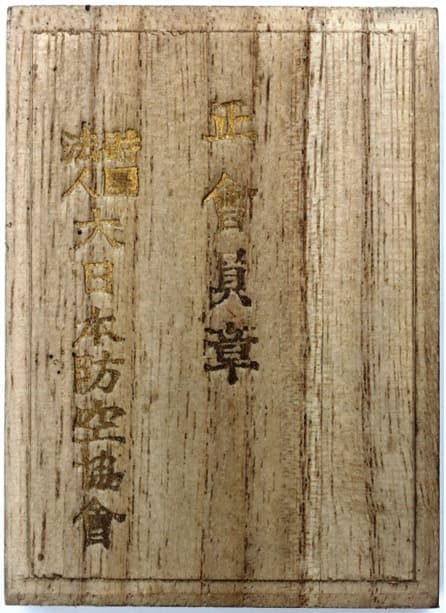 正會員章
財團法人大日本防空協會